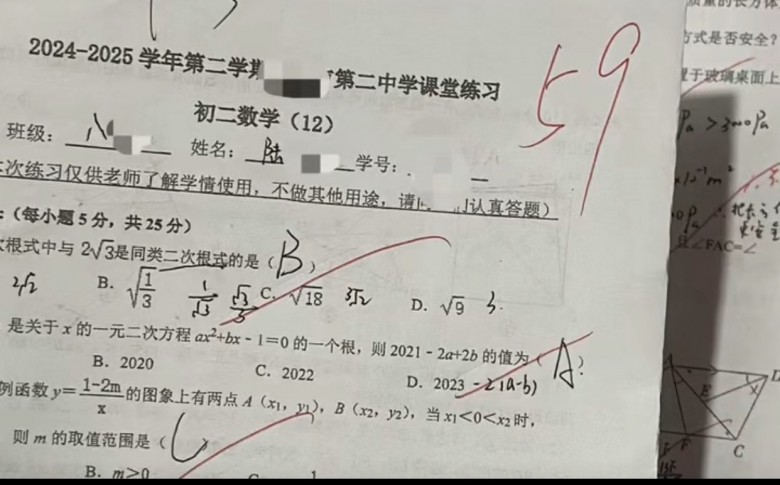 2024-2025 学年第二学期 第二中学课堂练习
59
初二数学（12）
班级： 八 姓名： 陆 学号：
次练习仅供老师了解学情使用，不做其他用途，请 认真答题）
：（每小题 5 分，共 25 分）
次根式中与 2√3是同类二次根式的是（ B ）
2√2 B. √(1/3) 1/√3 √3/3 C. √18 3√2 D. √9 3.
是关于 x 的一元二次方程 ax²+bx－1=0 的一个根，则 2021－2a+2b 的值为（ A ）
B. 2020 C. 2022 D. 2023 -2(a-b)
例函数 y=(1-2m)/x 的图象上有两点 A（x₁，y₁），B（x₂，y₂），当 x₁<0<x₂ 时，
则 m 的取值范围是（ C ）
B. m>0
质量的长方体
方式是否安全？
置于玻璃桌面上
Pa > 3000Pa
∠FAC=∠
E
C